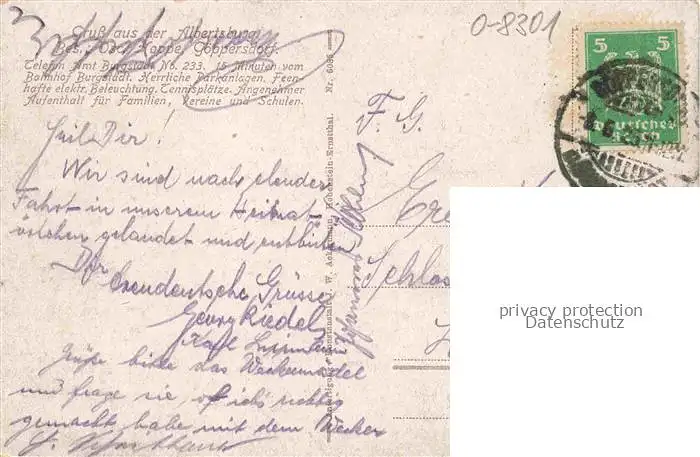 O-8301
Gruß aus der Albertsburg
Bes.: Osc. Hoppe, Göppersdorf.
Telefon Amt Burgstädt No. 233. 15 Minuten vom
Bahnhof Burgstädt. Herrliche Parkanlagen. Feen-
hafte elektr. Beleuchtung. Tennisplätze. Angenehmer
Aufenthalt für Familien, Vereine und Schulen.
Heil Dir!
Wir sind nach elender
Fahrt in unserem Heimat-
örtchen gelandet und entbieten
Dir
treudeutsche Grüsse
Georg Riedel
Karl
Grüße bitte das Weckermädel
und frage sie ob ich's richtig
gemacht habe mit dem Wecker
Nr. 6085
Kunstanstalt J. W. Ackermann, Hohenstein-Ernstthal.
F. G.
Schlos
5 5
Deutsches
Reich
privacy protection
Datenschutz